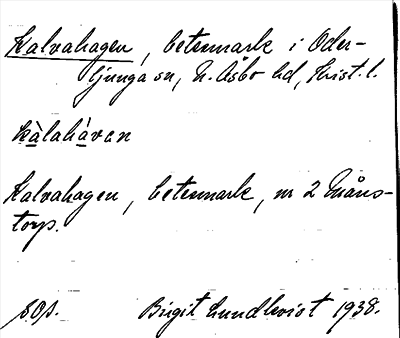 Kalvahagen, betesmark i Oder-
ljunga sn, N. Åsbo hd, Krist. l.
kàlahávan
Kalvahagen, betesmark, nr 2 Måns-
torp.
Birgit Lundkvist 1938.